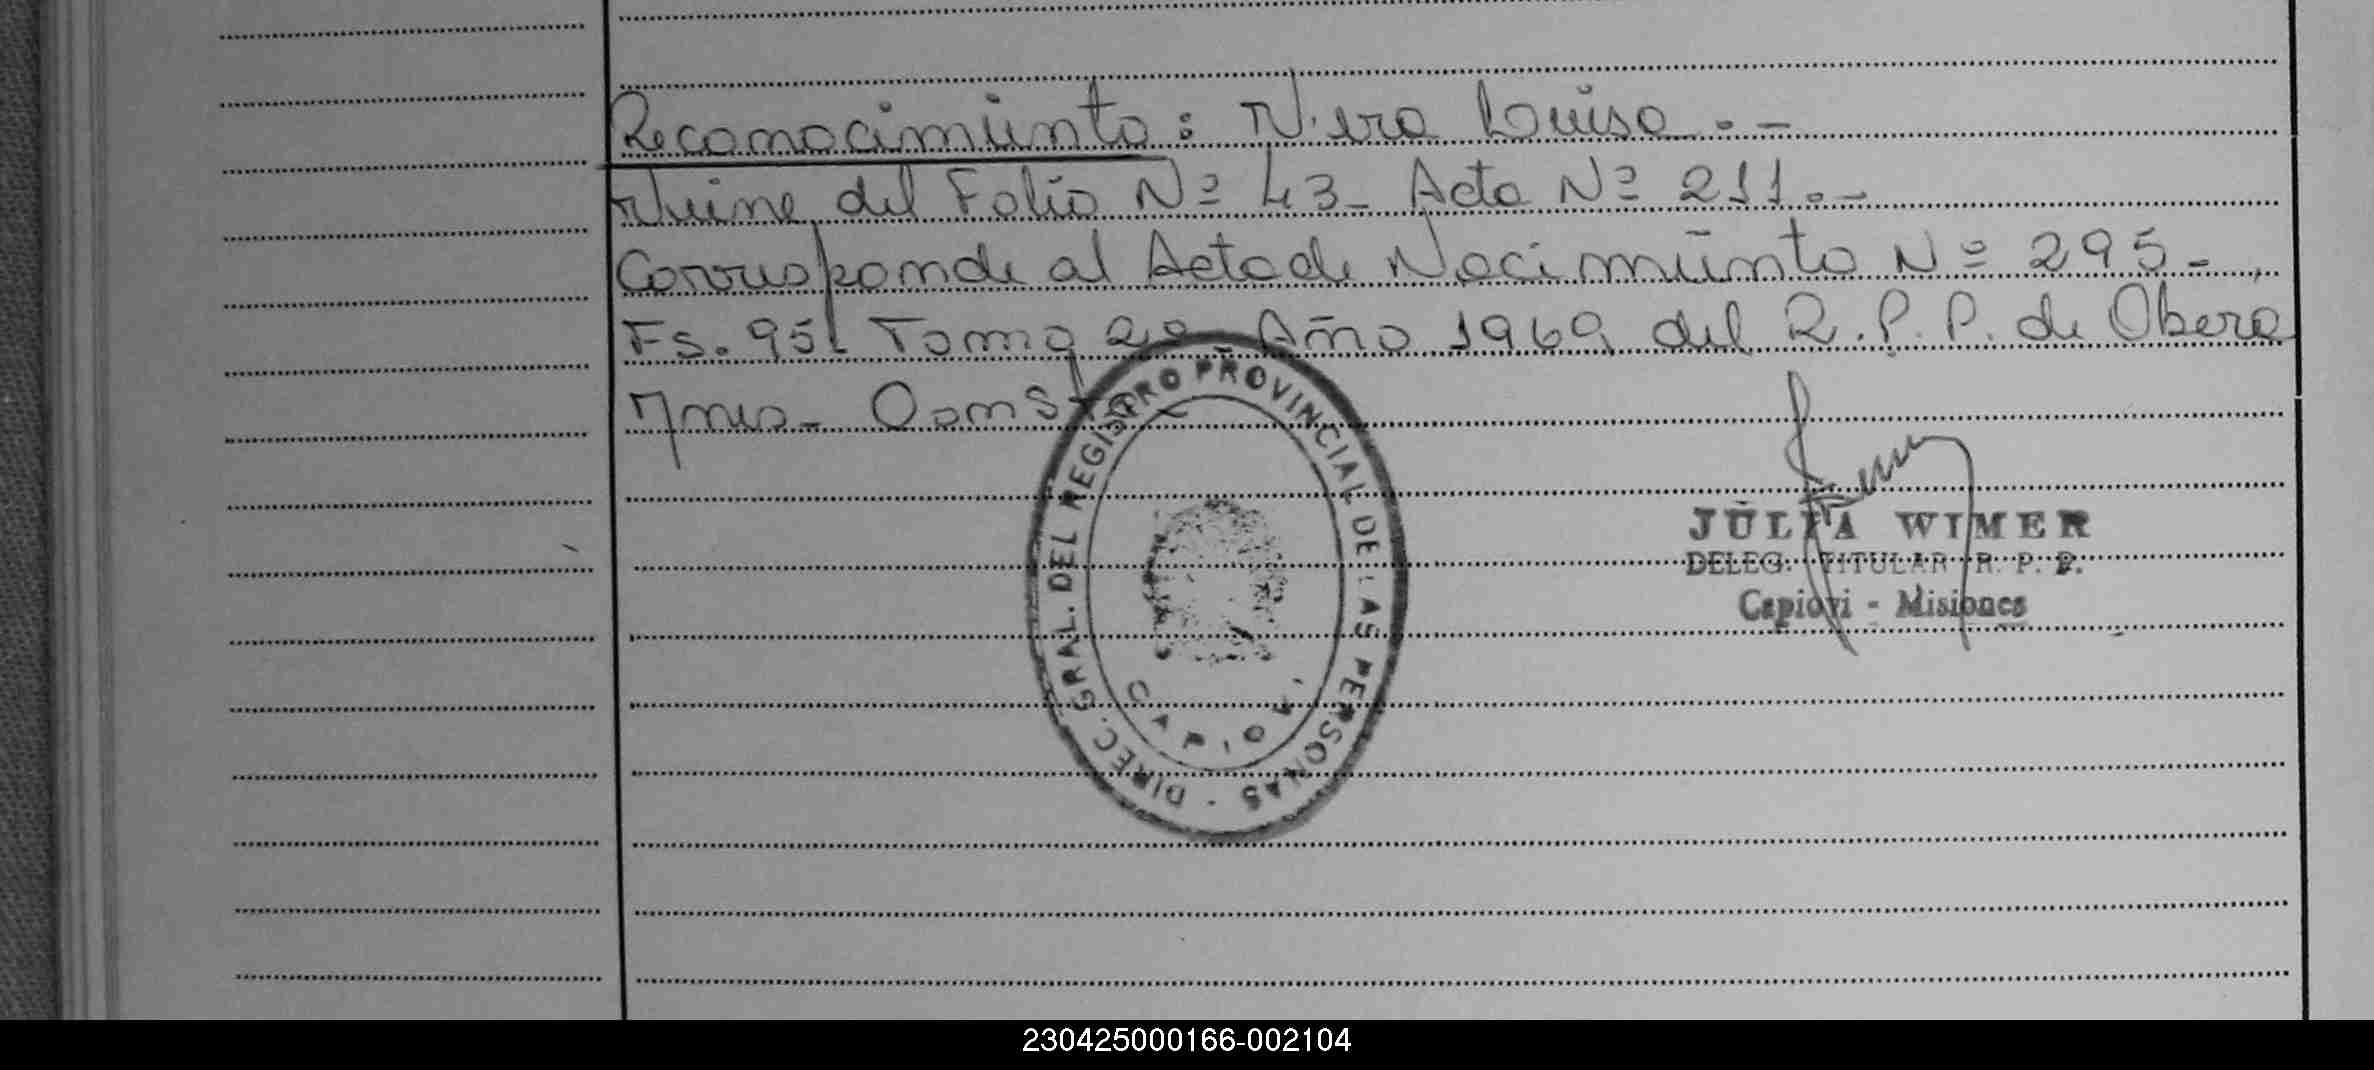 Reconocimiento: Viera Luisa.-
Viene del Folio Nº 43- Acta Nº 211.-
Corresponde al Acta de Nacimiento Nº 295-,
Fs. 95 Tomo 2º- Año 1969 del R.P.P. de Obera
Mnes- Const
DIREC. GRAL. DEL REGISTRO PROVINCIAL DE LAS PERSONAS -
CAPIOVI
JULIA WIMER
DELEG. TITULAR R. P. P.
Capiovi - Misiones
230425000166-002104